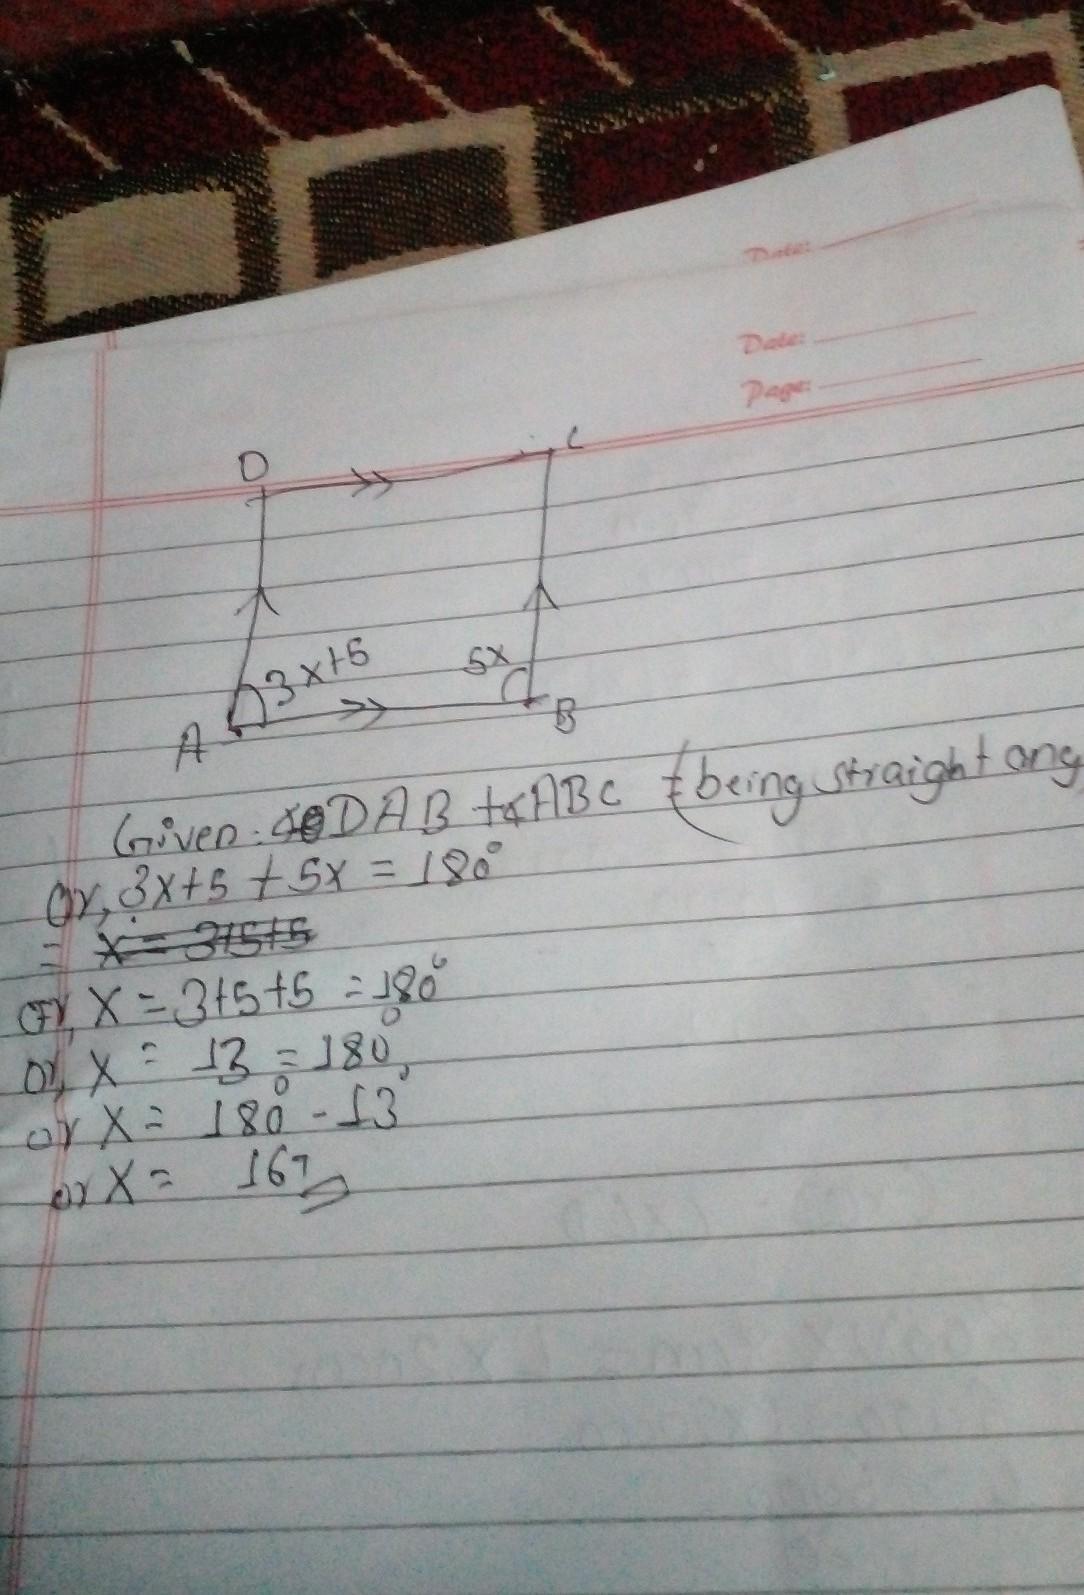 Date:
Date:
Page:
D
C
3x+5
5x
A
B
Given: ∠DAB + ∠ABC (being straight ang
or, 3x+5 + 5x = 180°
= x = 3+5+5
or, x = 3+5+5 = 180°
or, x = 13 = 180°
or x = 180° - 13°
or x = 167